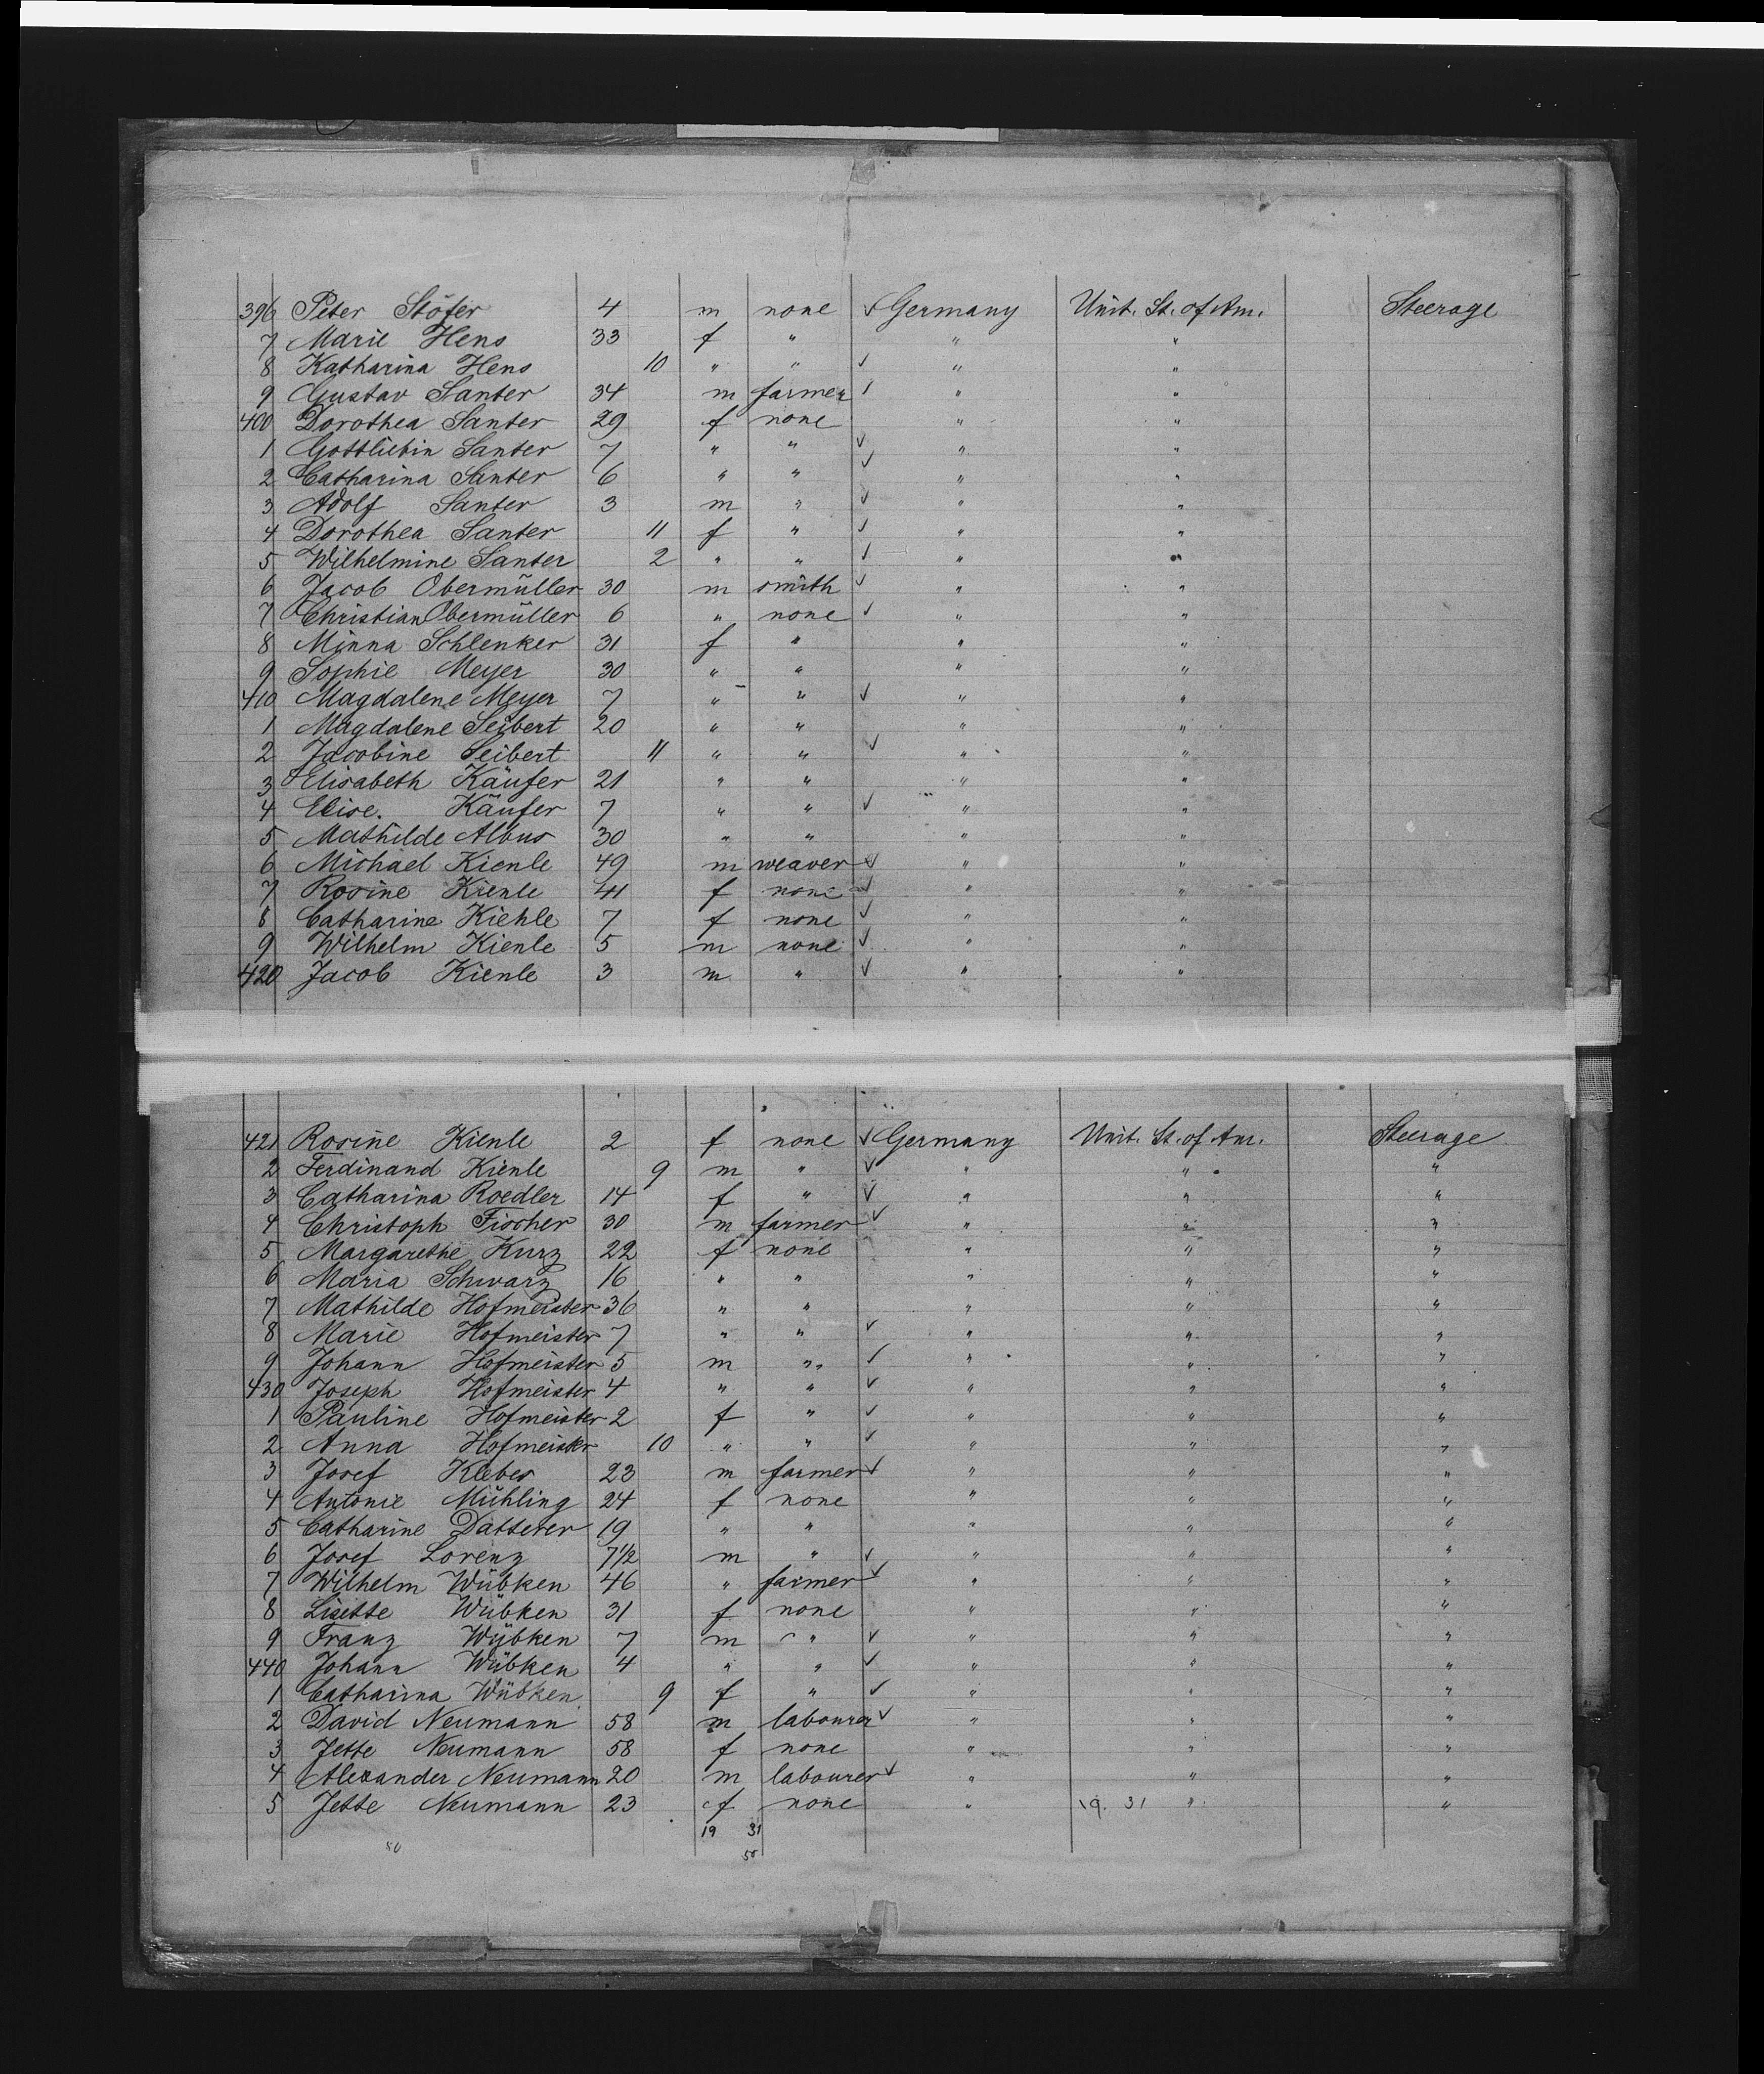 396 Peter Stöfer 4 m none ✓ Germany Unit. St. of Am. Steerage
7 Marie Hens 33 f " " "
8 Katharina Hens 10 " " ✓ " "
9 Gustav Santer 34 m farmer ✓ " "
400 Dorothea Santer 29 f none " "
1 Gottliebin Santer 7 " " ✓ " "
2 Catharina Santer 6 " " ✓ " "
3 Adolf Santer 3 m " ✓ " "
4 Dorothea Santer 11 f " ✓ " "
5 Wilhelmine Santer 2 " " ✓ " "
6 Jacob Obermüller 30 m smith ✓ " "
7 Christian Obermüller 6 " none ✓ " "
8 Minna Schlenker 31 f " " "
9 Sophie Meyer 30 " " " "
410 Magdalene Meyer 7 " " ✓ " "
1 Magdalene Seibert 20 " " " "
2 Jacobine Seibert 11 " " ✓ " "
3 Elisabeth Käufer 21 " " " "
4 Elise. Käufer 7 " " ✓ " "
5 Mathilde Albus 30 " " " "
6 Michael Kienle 49 m weaver ✓ " "
7 Rosine Kienle 41 f none ✓ " "
8 Catharine Kiehle 7 f none ✓ " "
9 Wilhelm Kienle 5 m none ✓ " "
420 Jacob Kienle 3 m " ✓ " "
421 Rosine Kienle 2 f none ✓ Germany Unit. St. of Am. Steerage
2 Ferdinand Kienle 9 m " ✓ " " "
3 Catharina Roedler 14 f " ✓ " " "
4 Christoph Fischer 30 m farmer ✓ " " "
5 Margarethe Kurz 22 f none " " "
6 Maria Schwarz 16 " " " " "
7 Mathilde Hofmeister 36 " " " " "
8 Marie Hofmeister 7 " " ✓ " " "
9 Johann Hofmeister 5 m " ✓ " " "
430 Joseph Hofmeister 4 " " ✓ " " "
1 Pauline Hofmeister 2 f " ✓ " " "
2 Anna Hofmeister 10 " " ✓ " " "
3 Josef Kleber 23 m farmer ✓ " " "
4 Antonie Mühling 24 f none " " "
5 Catharine Datterer 19 " " " " "
6 Josef Lorenz 7 1/2 m " ✓ " " "
7 Wilhelm Wübken 46 " farmer ✓ " " "
8 Lisette Wübken 31 f none " " "
9 Franz Wübken 7 m " ✓ " " "
440 Johann Wübken 4 " " ✓ " " "
1 Catharina Wübken 9 f " ✓ " " "
2 David Neumann 58 m labourer ✓ " " "
3 Jette Neumann 58 f none " " "
4 Alexander Neumann 20 m labourer ✓ " " "
5 Jette Neumann 23 f none " 19. 31 " "
19 31
50 50